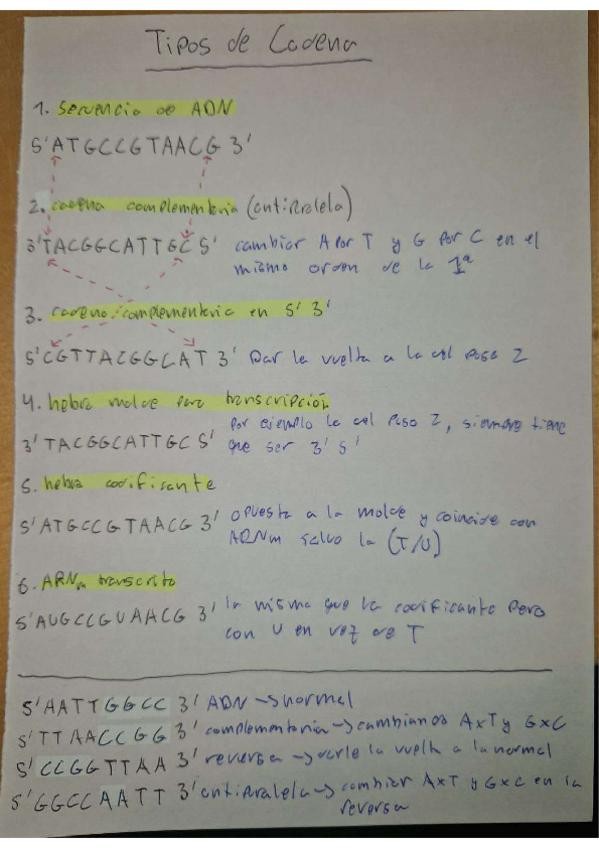 Tipos de Cadena
1. Secuencia de ADN
5'ATGCCGTAACG 3'
2. cadena complementaria (antiparalela)
3'TACGGCATTGC 5' cambiar A por T y G por C en el
mismo orden de la 1ª
3. cadena complementaria en 5' 3'
5'CGTTACGGCAT 3' Dar la vuelta a la del paso 2
4. hebra molde para transcripción
3'TACGGCATTGC 5' por ejemplo la del paso 2, siempre tiene
que ser 3' 5'
5. hebra codificante
5'ATGCCGTAACG 3' opuesta a la molde y coincide con
ARNm salvo la (T/U)
6. ARNm transcrito
5'AUGCCGUAACG 3' la misma que la codificante pero
con U en vez de T
5'AATTGGCC 3' ADN → normal
5'TTAACCGG 3' complementaria → cambiamos AxT y GxC
5'CCGGTTAA 3' reversa → darle la vuelta a la normal
5'GGCCAATT 3' antiparalela → cambiar AxT y GxC en la
reversa